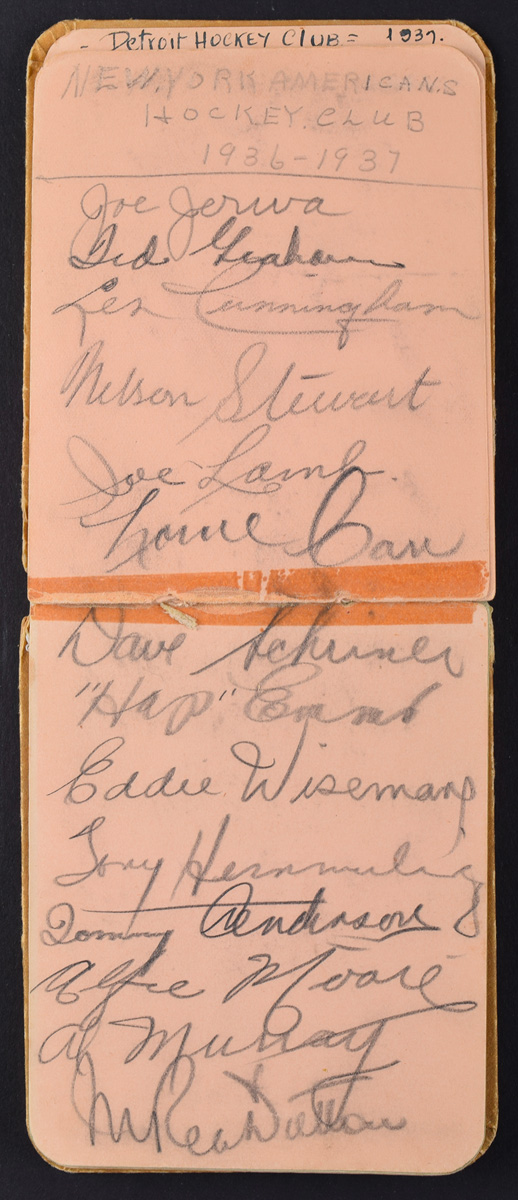 - Detroit HOCKEY CLUB = 1937.
NEW.YORK AMERICANS
HOCKEY.CLUB
1936-1937
Joe Jerwa
Ted Graham
Les Cunningham
Nelson Stewart
Joe Lamb.
Lorne Carr
Dave Schriner
"Hap" Emms
Eddie Wiseman
Tony Hemmerling
Tommy Anderson
Alfie Moore
Al Murray
M Rea Dutton